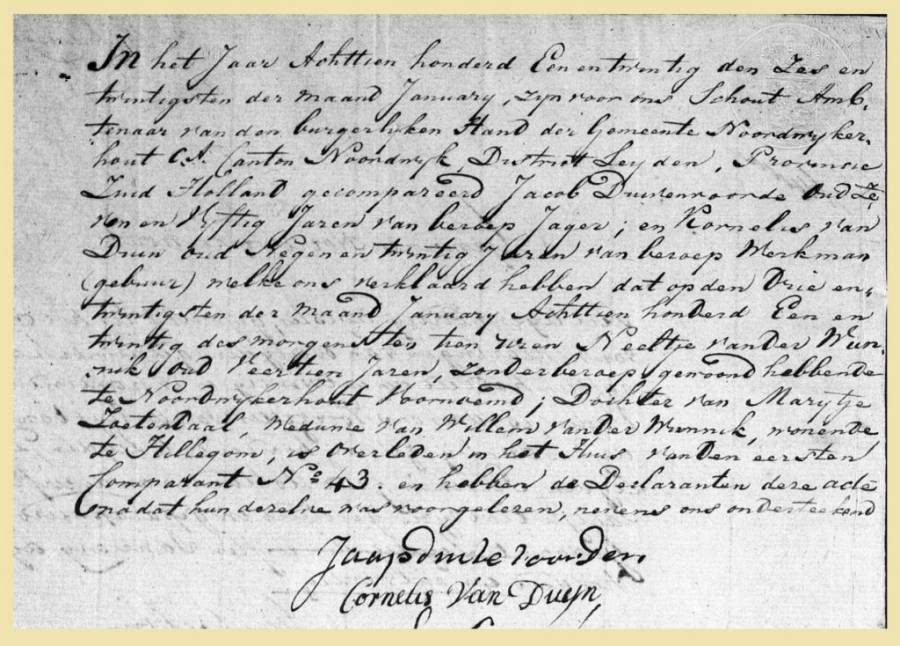 In het Jaar Achttien honderd Een en twintig den Zes en
twintigsten der maand January, zyn voor ons Schout Amb,
tenaar van den burgerlyken Stand der Gemeente Noordwyker,
hout CA. Canton Noordwyk, District Leyden, Provincie
Zuid Holland gecompareerd Jacob Duivenvoorde oud Ze,
ven en Vyftig Jaren van beroep Jager; en Kornelis van
Duin oud Negen en twintig Jaren van beroep Werkman
(gebuur) welke ons verklaard hebben dat op den Drie en,
twintigsten der maand January Achttien honderd Een en
twintig des morgens ten tien uren Neeltje van der Wun,
nik oud Veertien Jaren, zonder beroep gewoond hebbende
te Noordwykerhout Voornoemd; Dochter van Marytje
Zoetendaal, Weduwe van Willem van der Wunnik, wonende
te Hillegom, is overleden in het Huis van den eersten
Comparant No 43. en hebben de Declaranten deze acte
na dat hun dezelve was voorgelezen, nevens ons onderteekend
Jaap duivevoorden
Cornelis Van Duijn,